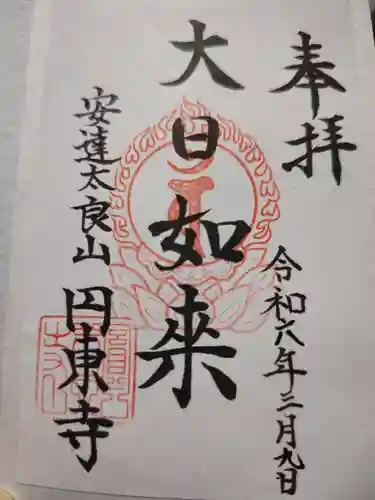 奉拝
令和六年二月九日
大日如来
安達太良山
円東寺